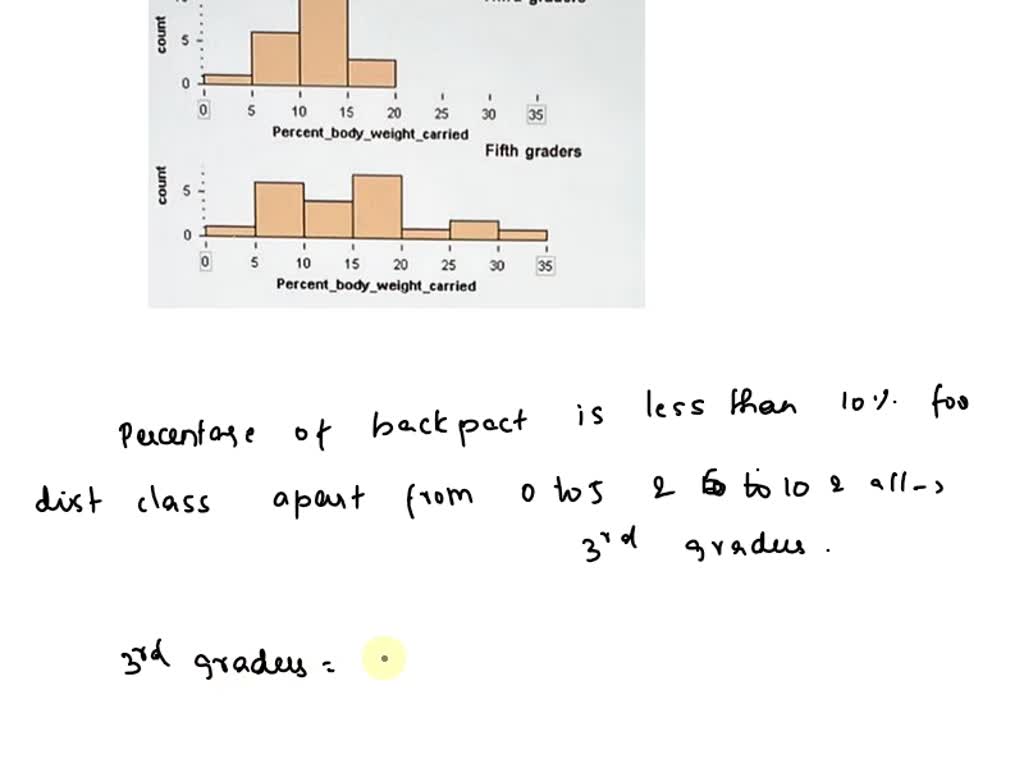 count
5
0
0 5 10 15 20 25 30 35
Percent_body_weight_carried
Fifth graders
count
5
0
0 5 10 15 20 25 30 35
Percent_body_weight_carried
Percentage of backpact is less than 10% foo
dist class apart from 0 to 5 2 to 10 2 all->
3rd grades.
3rd grades =